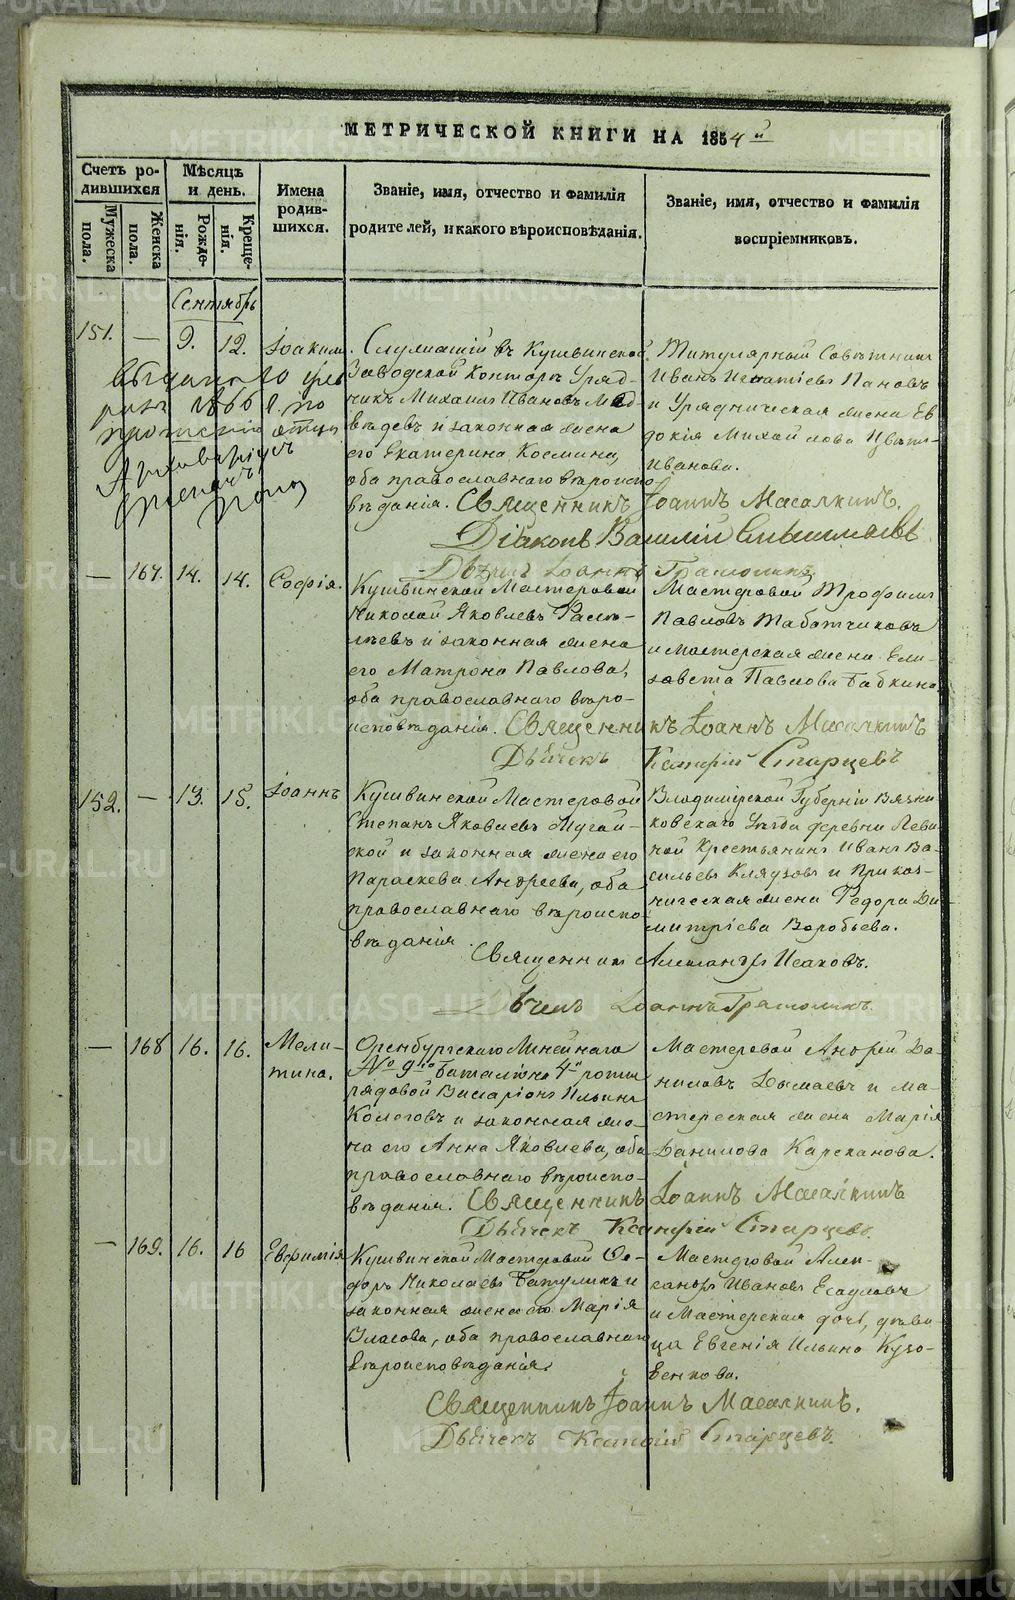 МЕТРИЧЕСКОЙ КНИГИ НА 1854й
Счетъ родившихся
Мужеска пола.
Женска пола.
Мѣсяцъ и день.
Рожденія.
Крещенія.
Имена родившихся.
Званіе, имя, отчество и фамилія
родителей, и какого вѣроисповѣданія.
Званіе, имя, отчество и фамилія
воспріемниковъ.
Сентябрь
151. — 9. 12. Іоакимъ.
Служащій въ Кушвинской
Заводской Конторѣ Уряд-
никъ Михаилъ Ивановъ Мед-
вѣдевъ и законная жена
его Екатерина Космина,
оба православнаго вѣроиспо-
вѣданія.
Титулярный Совѣтникъ
Иванъ Игнатіевъ Пановъ
и Урядническая жена Ев-
докія Михайлова
Иванова.
Священникъ Іоаннъ Масалкинъ.
Діаконъ Василій
Дьячекъ Іоаннъ
— 167. 14. 14. Софія.
Кушвинской Мастеровой
Николай Яковлевъ
и законная жена
его Матрона Павлова,
оба православнаго вѣро-
исповѣданія.
Мастеровой Трофимъ
Павловъ Табатчиковъ
и Мастерская жена Ели-
завета Павлова Бабкина.
Священникъ Іоаннъ Масалкинъ
Дьячекъ Ксанфій Старцевъ
152. — 13. 15. Іоаннъ
Кушвинской Мастеровой
Степанъ Яковлевъ Мугай-
ской и законная жена его
Параскева Андреева, оба
православнаго вѣроиспо-
вѣданія.
Владимірской Губерніи Вязни-
ковскаго Уѣзда деревни
Крестьянинъ Иванъ Ва-
сильевъ и Приказ-
ническая жена Федора Ди-
митріева Воробьева.
Священникъ Александръ Исаковъ.
Дьячекъ Іоаннъ
— 168 16. 16. Мели-
тина.
Оренбургскаго Линейнаго
№ 9го Баталіона 4й роты
рядовой Иларіонъ Ильинъ
и законная же-
на его Анна Яковлева, оба
православнаго вѣроиспо-
вѣданія.
Мастеровой Андрей Да-
ниловъ и Ма-
стерская жена Марія
Данилова Карсканова.
Священникъ Іоаннъ Масалкинъ
Дьячекъ Ксанфій Старцевъ.
— 169. 16. 16 Евфимія
Кушвинской Мастеровой Ѳе-
доръ Николаевъ и
законная жена его Марія
Власова, оба православнаго
вѣроисповѣданія.
Мастеровой Алек-
сандръ Ивановъ Есауловъ
и Мастерская дочь, дѣви-
ца Евгенія Ильина Кузо-
венкова.
Священникъ Іоаннъ Масалкинъ.
Дьячекъ Ксанфій Старцевъ.
METRIKI.GASO-URAL.RU